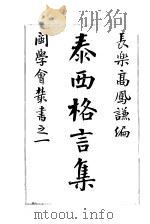 長樂高鳳謙編
泰西格言集
閩學會叢書之一